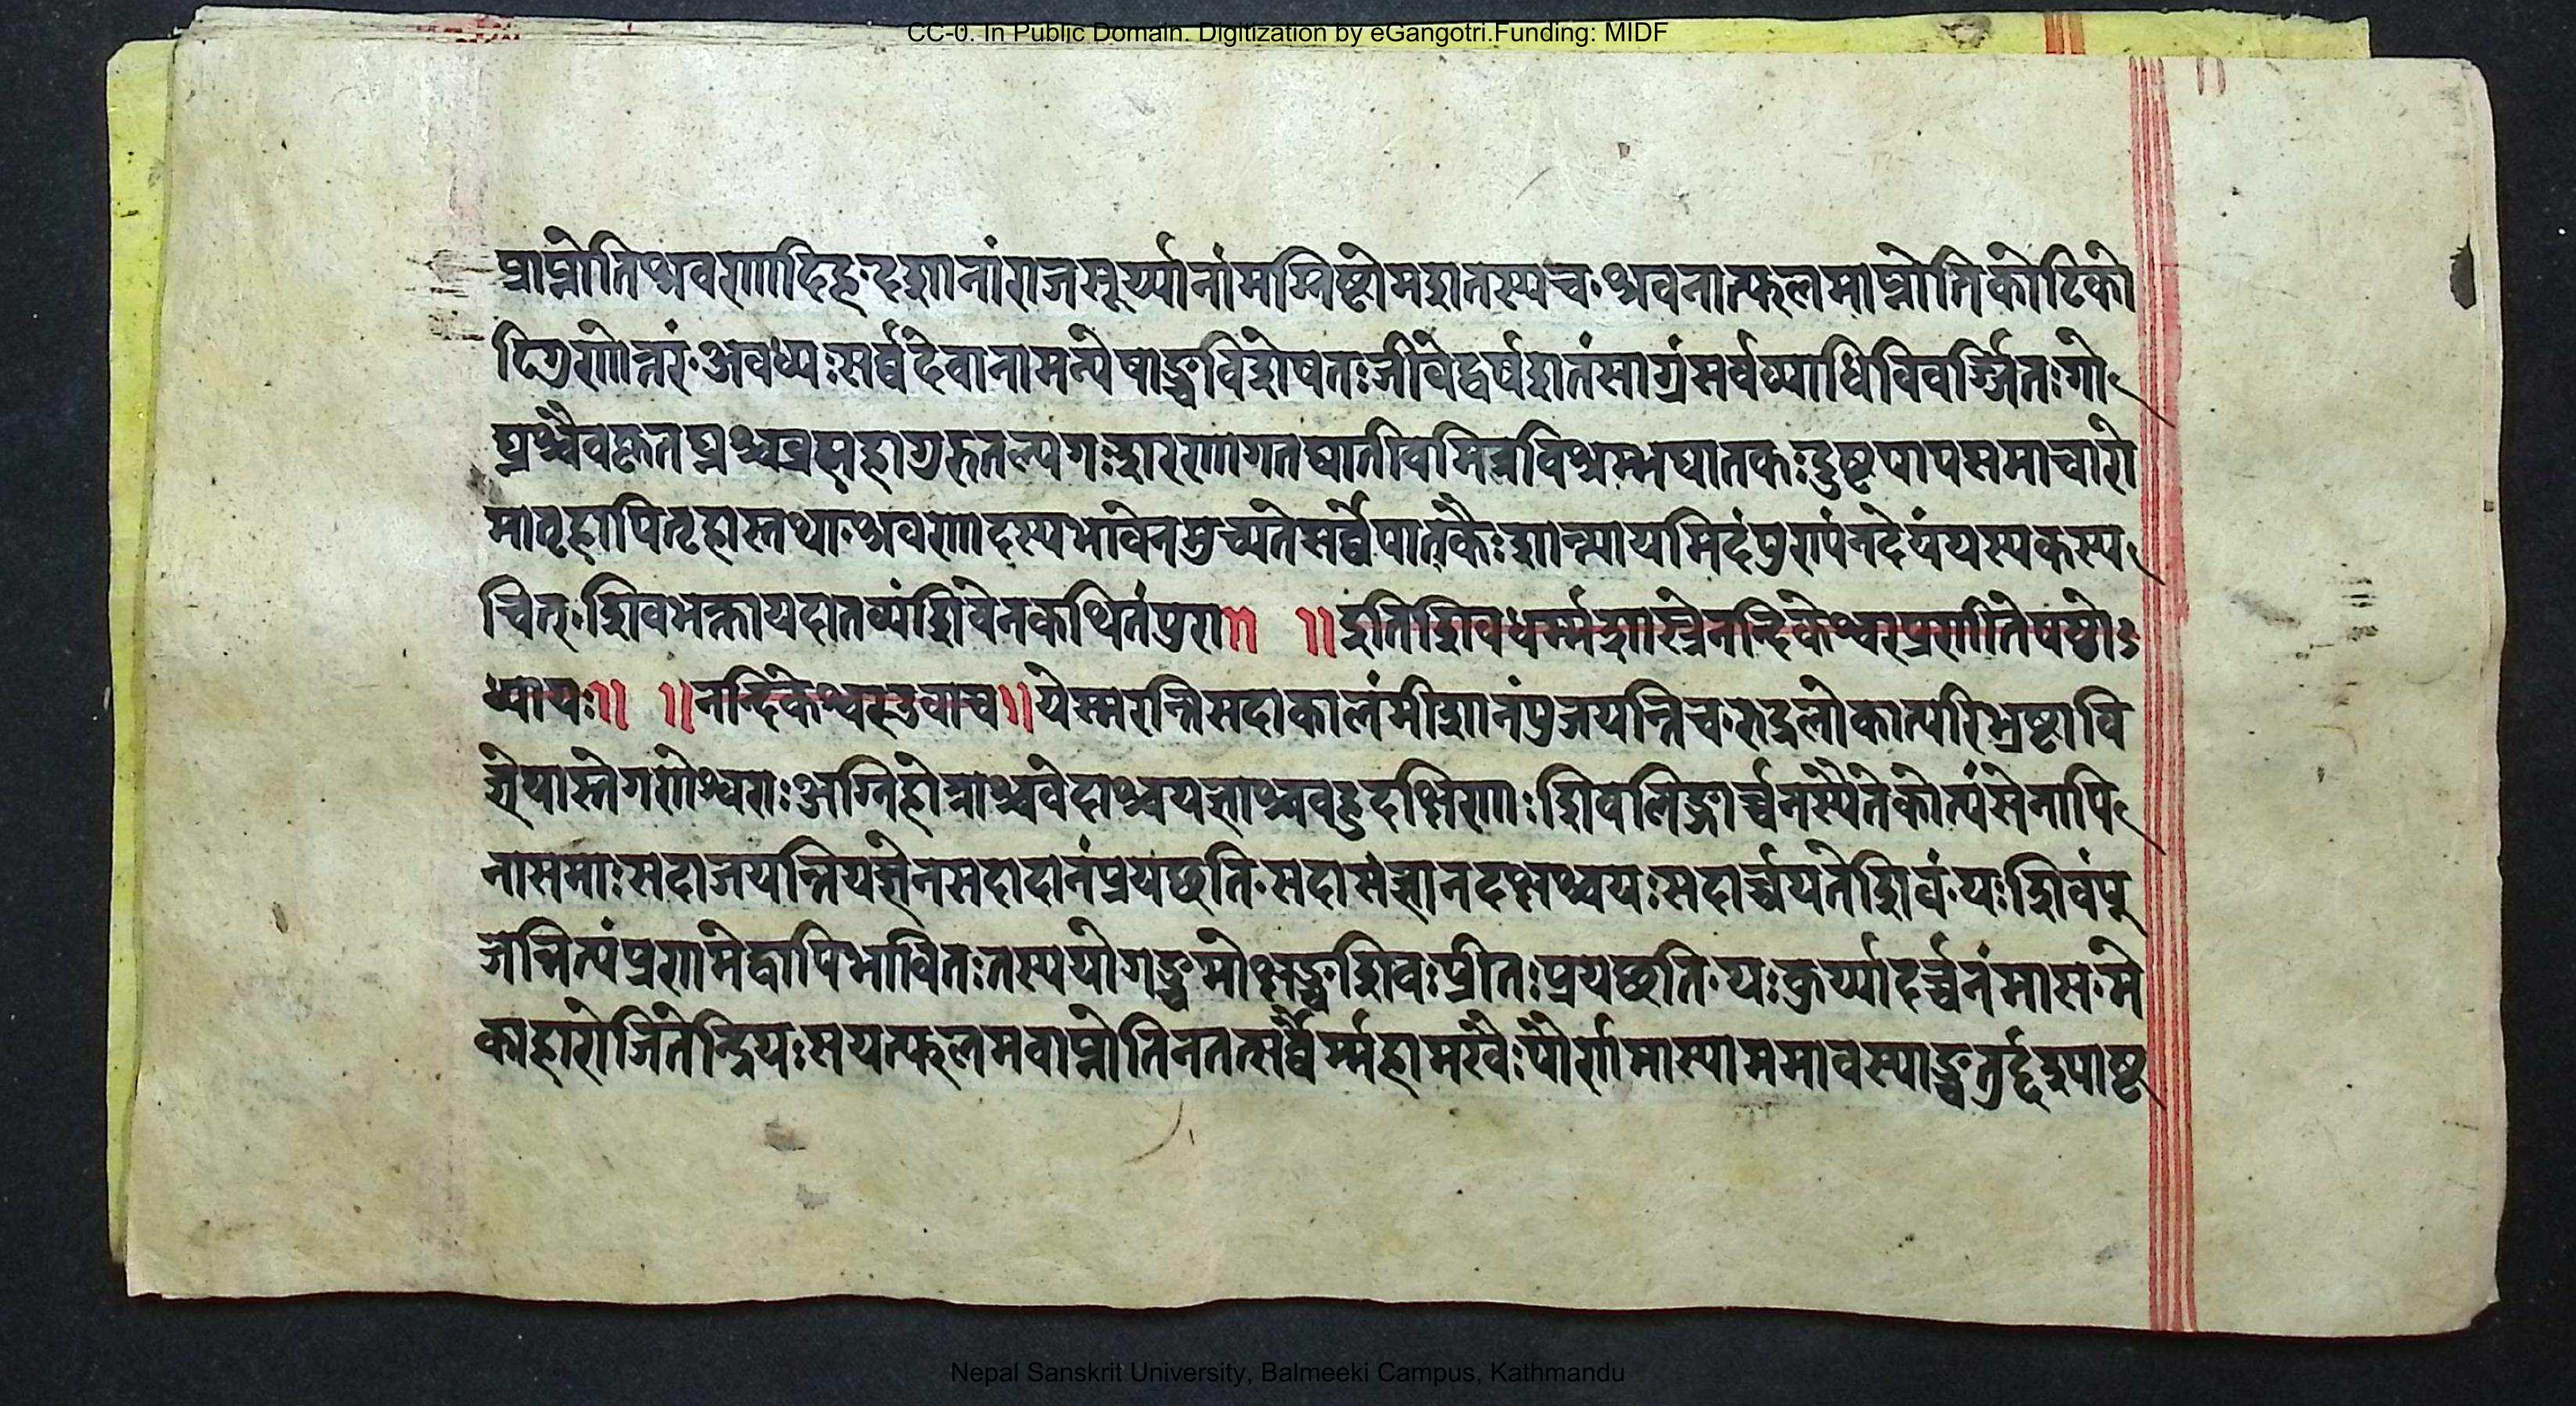 CC-0. In Public Domain. Digitization by eGangotri.Funding: MIDF
प्राप्नोतिश्रवणादिहदशानांराजसूर्य्यानांमग्निष्टोमशतस्यच·श्रवनात्फलमाप्नोतिकोटिको
टिगुणोत्तरं·अवध्यःसर्व्वदेवानामन्येषाञ्चविशेषतःजीवेद्वर्षशतंसाग्रंसर्वव्याधिविवर्ज्जितःगो
घ्नश्चैवकृतघ्नश्चब्रह्महागुरुतल्पगःशरणागतघातीवमित्रविश्रम्भघातकःदुष्टपापसमाचारो
मातृहापितृहास्तथा·श्रवणादस्यभावेनमुच्यतेसर्व्वेपातकैःशान्त्मायमिदंपुरापंनदेयंयस्यकस्य
चित्·शिवभक्तायदातव्यंशिवेनकथितंपुरा॥ ॥इतिशिवधर्म्मशास्त्रेनन्दिकेश्वरप्रणीतेषष्ठोऽ
ध्यायः॥ ॥नन्दिकेश्वरउवाच॥येस्मरन्तिसदाकालंमीशानंपुजयन्तिच·रुद्रलोकात्परिभ्रष्टावि
ज्ञेयास्तेगणेश्वराःअग्निहोत्राश्चवेदाश्चयज्ञाश्चवहुदक्षिणाःशिवलिङ्गार्च्चनस्यैतेकोत्यंसेनापि
नासमाःसदाजयन्तियज्ञेनसदादानंप्रयछति·सदासंज्ञानदक्षश्चयःसदार्च्चयतेशिवं·यःशिवंपू
जेन्नित्यंप्रणमेद्वापिभावितःतस्ययोगञ्चमोक्षञ्चशिवःप्रीतःप्रयछति·यःकुर्य्यादर्च्चनंमास·मे
काहारोजितेन्द्रियःसयत्फलमवाप्नोतिनतत्सर्व्वैर्म्महामखैःपौर्णमास्याममावस्याञ्चतुर्द्दश्याष्ट
Nepal Sanskrit University, Balmeeki Campus, Kathmandu